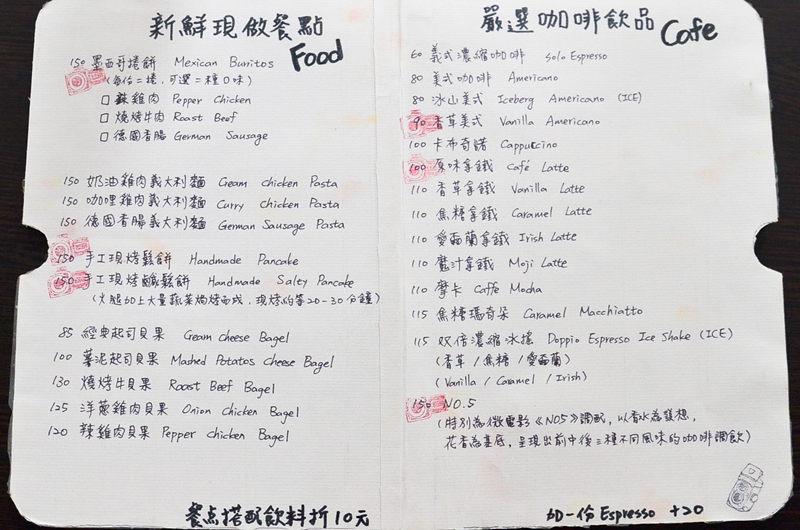 新鮮現做餐點
Food
150 墨西哥捲餅 Mexican Burritos
(每份二捲,可選二種口味)
□ 辣雞肉 Pepper Chicken
□ 燒烤牛肉 Roast Beef
□ 德國香腸 German Sausage
150 奶油雞肉義大利麵 Cream chicken Pasta
150 咖哩雞肉義大利麵 Curry chicken Pasta
150 德國香腸義大利麵 German Sausage Pasta
150 手工現烤鬆餅 Handmade Pancake
150 手工現烤鹹鬆餅 Handmade Salty Pancake
(火腿加上大量蔬菜焗烤而成,現烤約等20-30分鐘)
85 經典起司貝果 Cream cheese Bagel
100 薯泥起司貝果 Mashed Potatos Cheese Bagel
130 燒烤牛貝果 Roast Beef Bagel
125 洋蔥雞肉貝果 Onion Chicken Bagel
120 辣雞肉貝果 Pepper chicken Bagel
餐点搭配飲料折10元
嚴選咖啡飲品
Cafe
60 義式濃縮咖啡 Solo Espresso
80 美式咖啡 Americano
80 冰山美式 Iceberg Americano (ICE)
90 香草美式 Vanilla Americano
100 卡布奇諾 Cappuccino
100 原味拿鐵 Café Latte
110 香草拿鐵 Vanilla Latte
110 焦糖拿鐵 Caramel Latte
110 愛爾蘭拿鐵 Irish Latte
110 魔汁拿鐵 Moji Latte
110 摩卡 Caffé Mocha
115 焦糖瑪奇朵 Caramel Macchiatto
115 双倍濃縮冰搖 Doppio Espresso Ice Shake (ICE)
(香草/焦糖/愛爾蘭)
(Vanilla / Caramel / Irish)
150 NO.5
(特別為微電影《NO5》調配,以香水為發想,
花香為基底,呈現出前中後三種不同風味的咖啡調飲)
加一份 Espresso +20